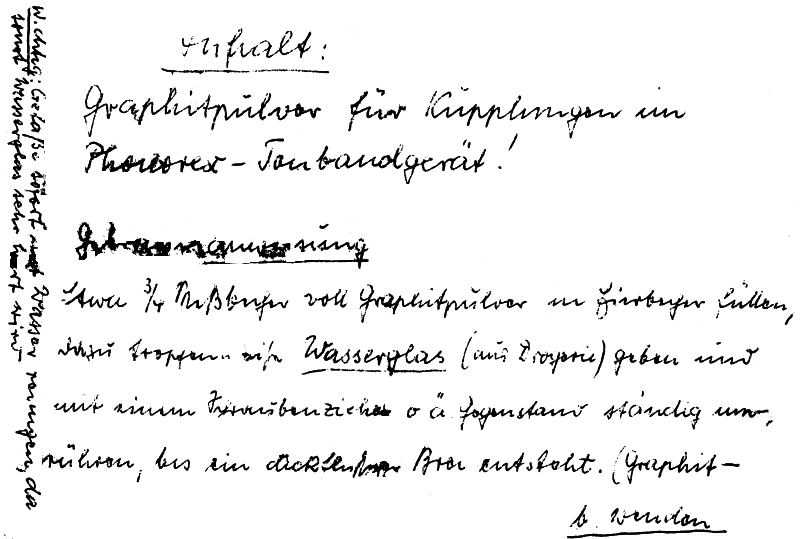 Inhalt:
Graphitpulver für Kupplungen im
Phonorex - Tonbandgerät!
Gebrauchsanweisung
Etwa 3/4 Meßbecher voll Graphitpulver in Eierbecher füllen,
dazu tropfenweise Wasserglas (aus Drogerie) geben und
mit einem Schraubenzieher o ä Gegenstand ständig um-
rühren, bis ein dickflüssiger Brei entsteht. (Graphit-
b. wenden
Wichtig: Gefäße sofort mit Wasser reinigen, da
sonst Wasserglas sehr hart wird